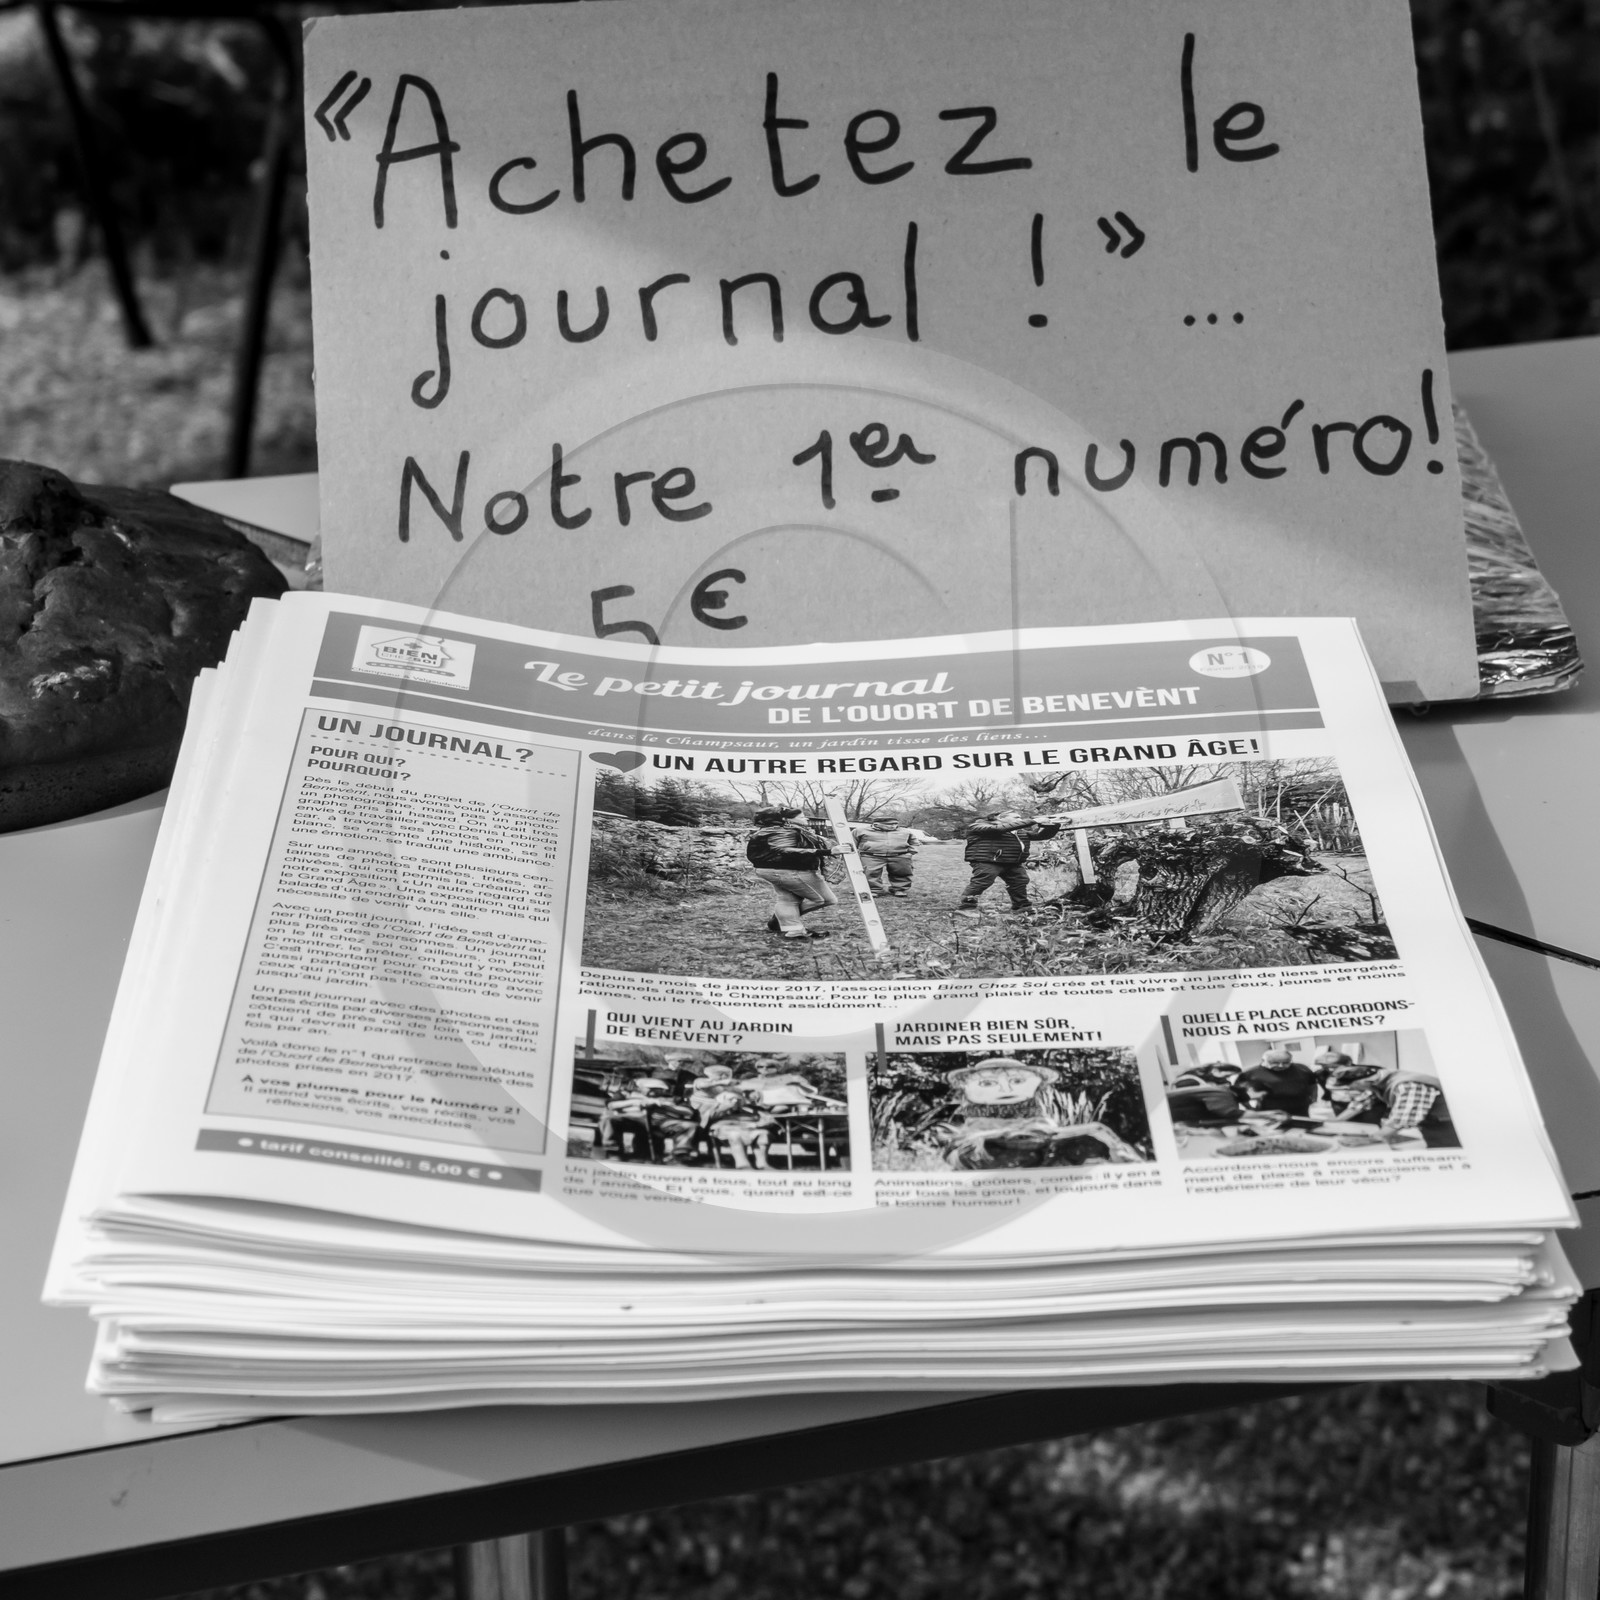 « Achetez le
journal ! » ...
Notre 1er numéro!
5€
BIEN
CHEZ SOI
Champsaur & Valgaudemar
Le petit journal
DE L'OUORT DE BENEVÈNT
N° 1
dans le Champsaur, un jardin tisse des liens...
UN JOURNAL?
POUR QUI?
POURQUOI?
Dès le début du projet de l'Ouort de
Benevènt, nous avons voulu y associer
un photographe, mais pas un photo-
graphe pris au hasard. On avait très
envie de travailler avec Denis Lebioda
car, à travers ses photos en noir et
blanc, se raconte une histoire, se lit
une émotion, se traduit une ambiance.
Sur une année, ce sont plusieurs cen-
taines de photos traitées, triées, ar-
chivées, qui ont permis la création de
notre exposition « Un autre regard sur
le Grand Âge ». Une exposition qui se
balade d'un endroit à un autre mais qui
nécessite de venir vers elle.
Avec un petit journal, l'idée est d'ame-
ner l'histoire de l'Ouort de Benevènt au
plus près des personnes. Un journal,
on le lit chez soi ou ailleurs, on peut
le montrer, le prêter, on peut y revenir.
C'est important pour nous de pouvoir
aussi partager cette aventure avec
ceux qui n'ont pas l'occasion de venir
jusqu'au jardin.
Un petit journal avec des photos et des
textes écrits par diverses personnes qui
côtoient de près ou de loin ce jardin,
et qui devrait paraître une ou deux
fois par an.
Voilà donc le n°1 qui retrace les débuts
de l'Ouort de Benevènt, agrémenté des
photos prises en 2017.
À vos plumes pour le Numéro 2!
Il attend vos écrits, vos récits, vos
réflexions, vos anecdotes...
• tarif conseillé: 5,00 € •
UN AUTRE REGARD SUR LE GRAND ÂGE!
Depuis le mois de janvier 2017, l'association Bien Chez Soi crée et fait vivre un jardin de liens intergéné-
rationnels dans le Champsaur. Pour le plus grand plaisir de toutes celles et tous ceux, jeunes et moins
jeunes, qui le fréquentent assidûment...
QUI VIENT AU JARDIN
DE BÉNÉVENT?
Un jardin ouvert à tous, tout au long
de l'année. Et vous, quand est-ce
que vous venez?
JARDINER BIEN SÛR,
MAIS PAS SEULEMENT!
Animations, goûters, contes: il y en a
pour tous les goûts, et toujours dans
la bonne humeur!
QUELLE PLACE ACCORDONS-
NOUS À NOS ANCIENS?
Accordons-nous encore suffisam-
ment de place à nos anciens et à
l'expérience de leur vécu?